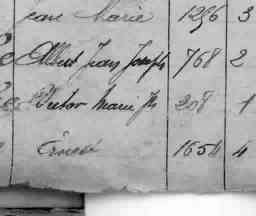 Jean Marie 1296 3
Albert Jean Joseph 768 2
Victor Marie Js 208 1
Ernest 1654 4